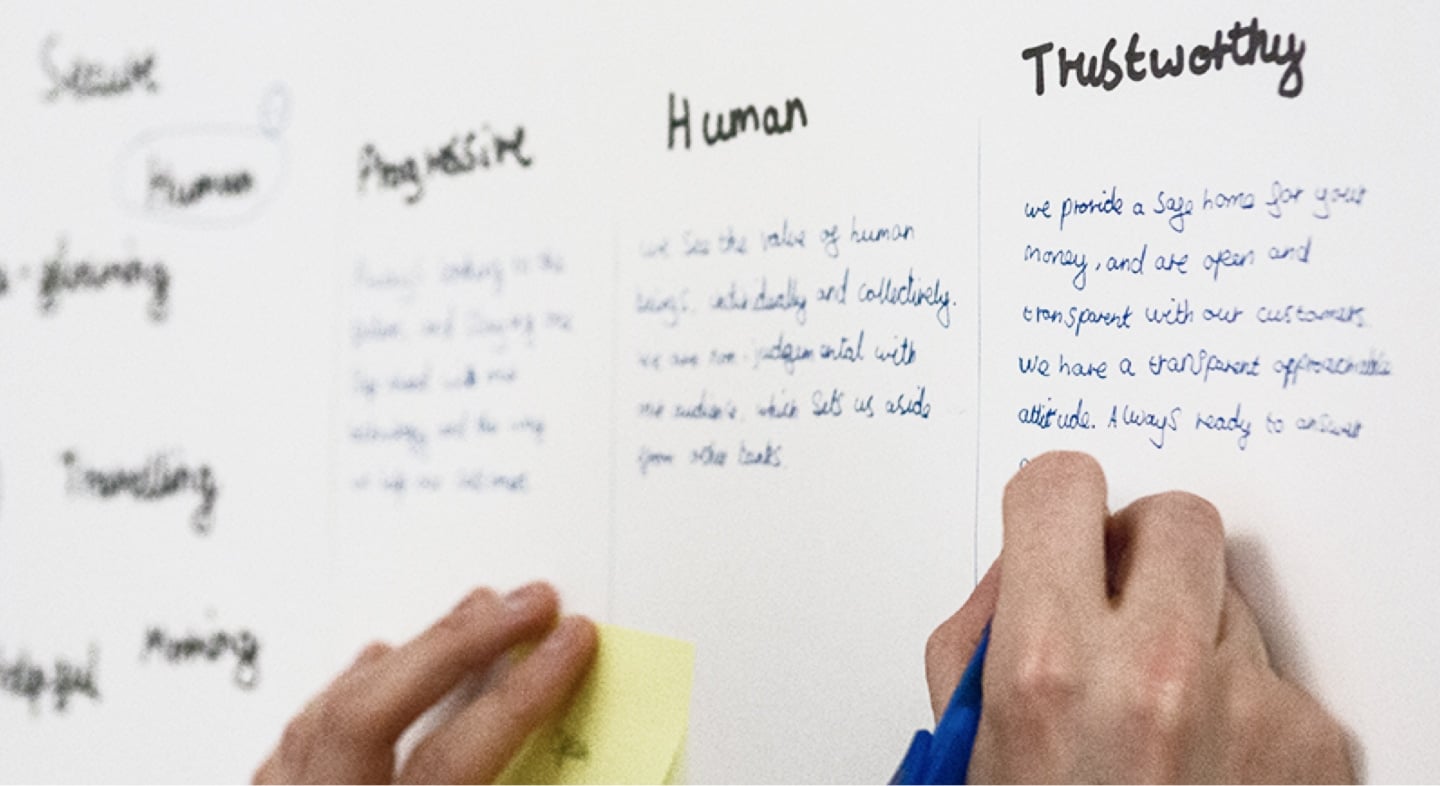 Secure
Human
Progressive
Human
Trustworthy
planning
Travelling
Helpful
Morning
Always looking to the
future, and
with
technology and the way
we see the value of human
beings, individually and collectively.
we are non-judgemental with
our audience, which sets us aside
from other banks.
we provide a safe home for your
money, and are open and
transparent with our customers.
We have a transparent approachable
attitude. Always ready to answer